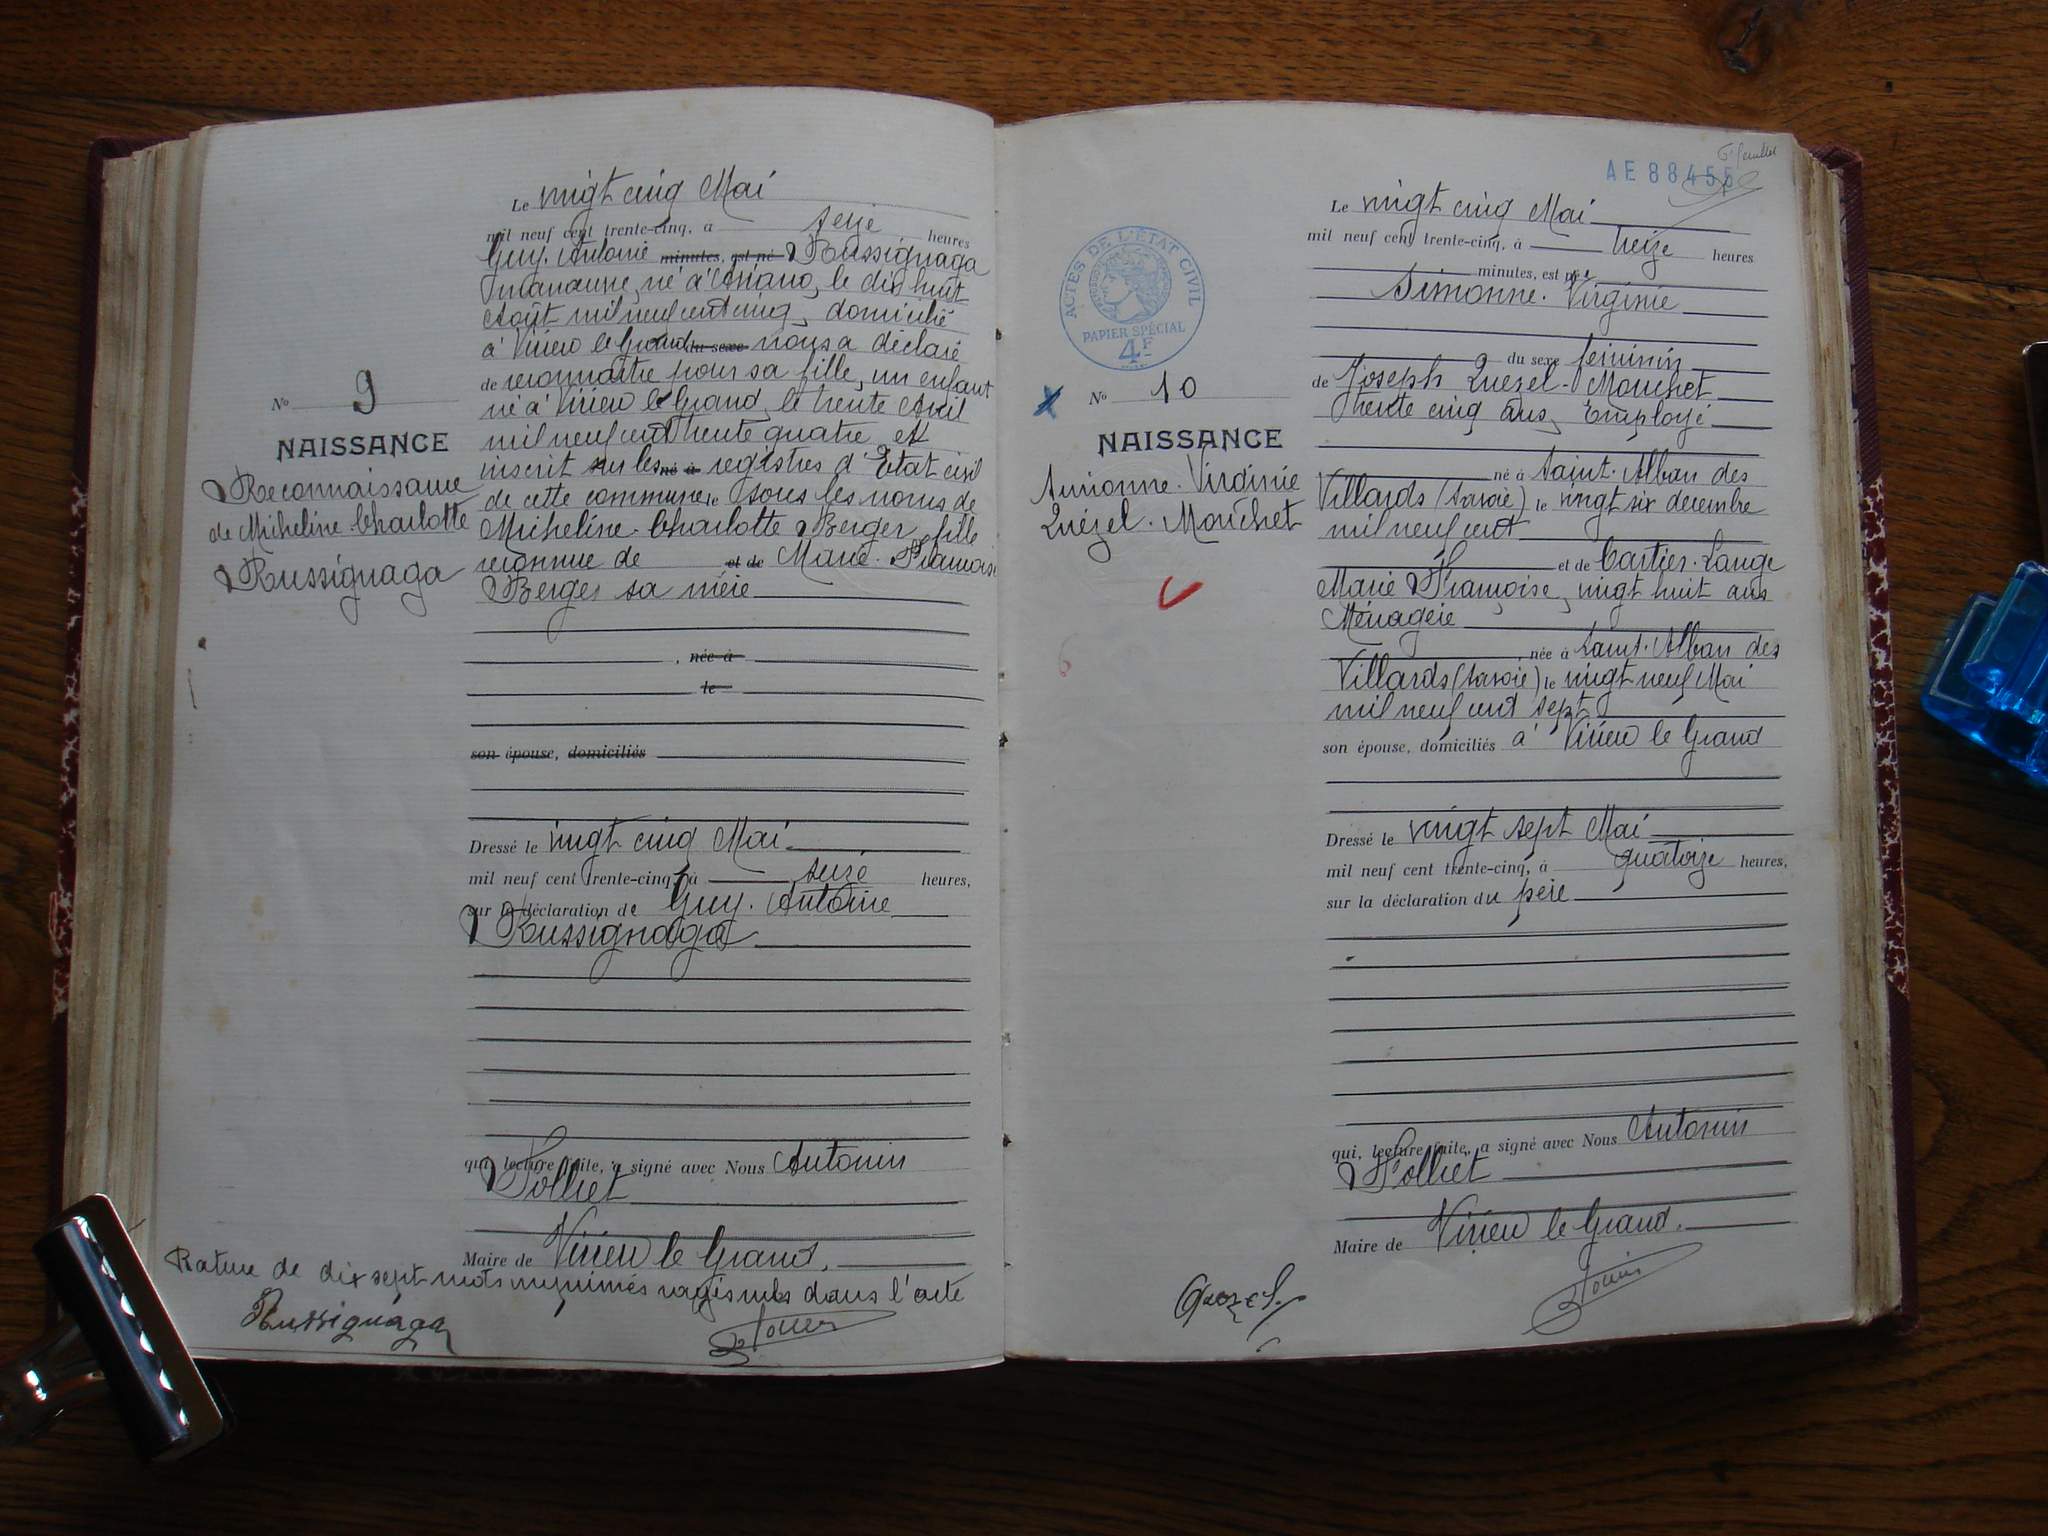 Le vingt cinq Mai
mil neuf cent trente-cinq, à seize heures
Guy. Antoine minutes, est né Russignaga
né à le dix huit
Août mil neuf cent cinq, domicilié
à Virieu le Grand du sexe nous a déclaré
de reconnaître pour sa fille, un enfant
né à Virieu le Grand, le trente Avril
mil neuf cent trente quatre et
inscrit sur les né à registres d'Etat civil
de cette commune le sous les noms de
Micheline. Charlotte Berger, fille
reconnue de et de Marie. Françoise
Berger sa mère
, née à
le
son épouse, domiciliés
Dressé le vingt cinq Mai
mil neuf cent trente-cinq, à seize heures,
sur la déclaration de Guy. Antoine
Russignaga
qui, lecture faite, a signé avec Nous Antonin
Folliet
Maire de Virieu le Grand.
Rature de dix sept mots imprimés dans l'acte
Russignaga
No 9
NAISSANCE
Reconnaissance
de Micheline Charlotte
Russignaga
AE 88455
6e feuillet
ACTES DE L'ÉTAT CIVIL
PAPIER SPÉCIAL
4F
No 10
NAISSANCE
Simonne. Virginie
Quézel. Mouchet
6
Le vingt cinq Mai
mil neuf cent trente-cinq, à treize heures
minutes, est née
Simonne. Virginie
du sexe féminin
de Joseph Quézel. Mouchet
trente cinq ans, Employé
né à Saint. Alban des
Villards (Savoie) le vingt six décembre
mil neuf cent
et de Cartier. Lange
Marie Françoise, vingt huit ans
Ménagère
, née à Saint. Alban des
Villards (Savoie) le vingt neuf Mai
mil neuf cent sept
son épouse, domiciliés à Virieu le Grand
Dressé le vingt sept Mai
mil neuf cent trente-cinq, à quatorze heures,
sur la déclaration du père
qui, lecture faite, a signé avec Nous Antonin
Folliet
Maire de Virieu le Grand.
Quezel